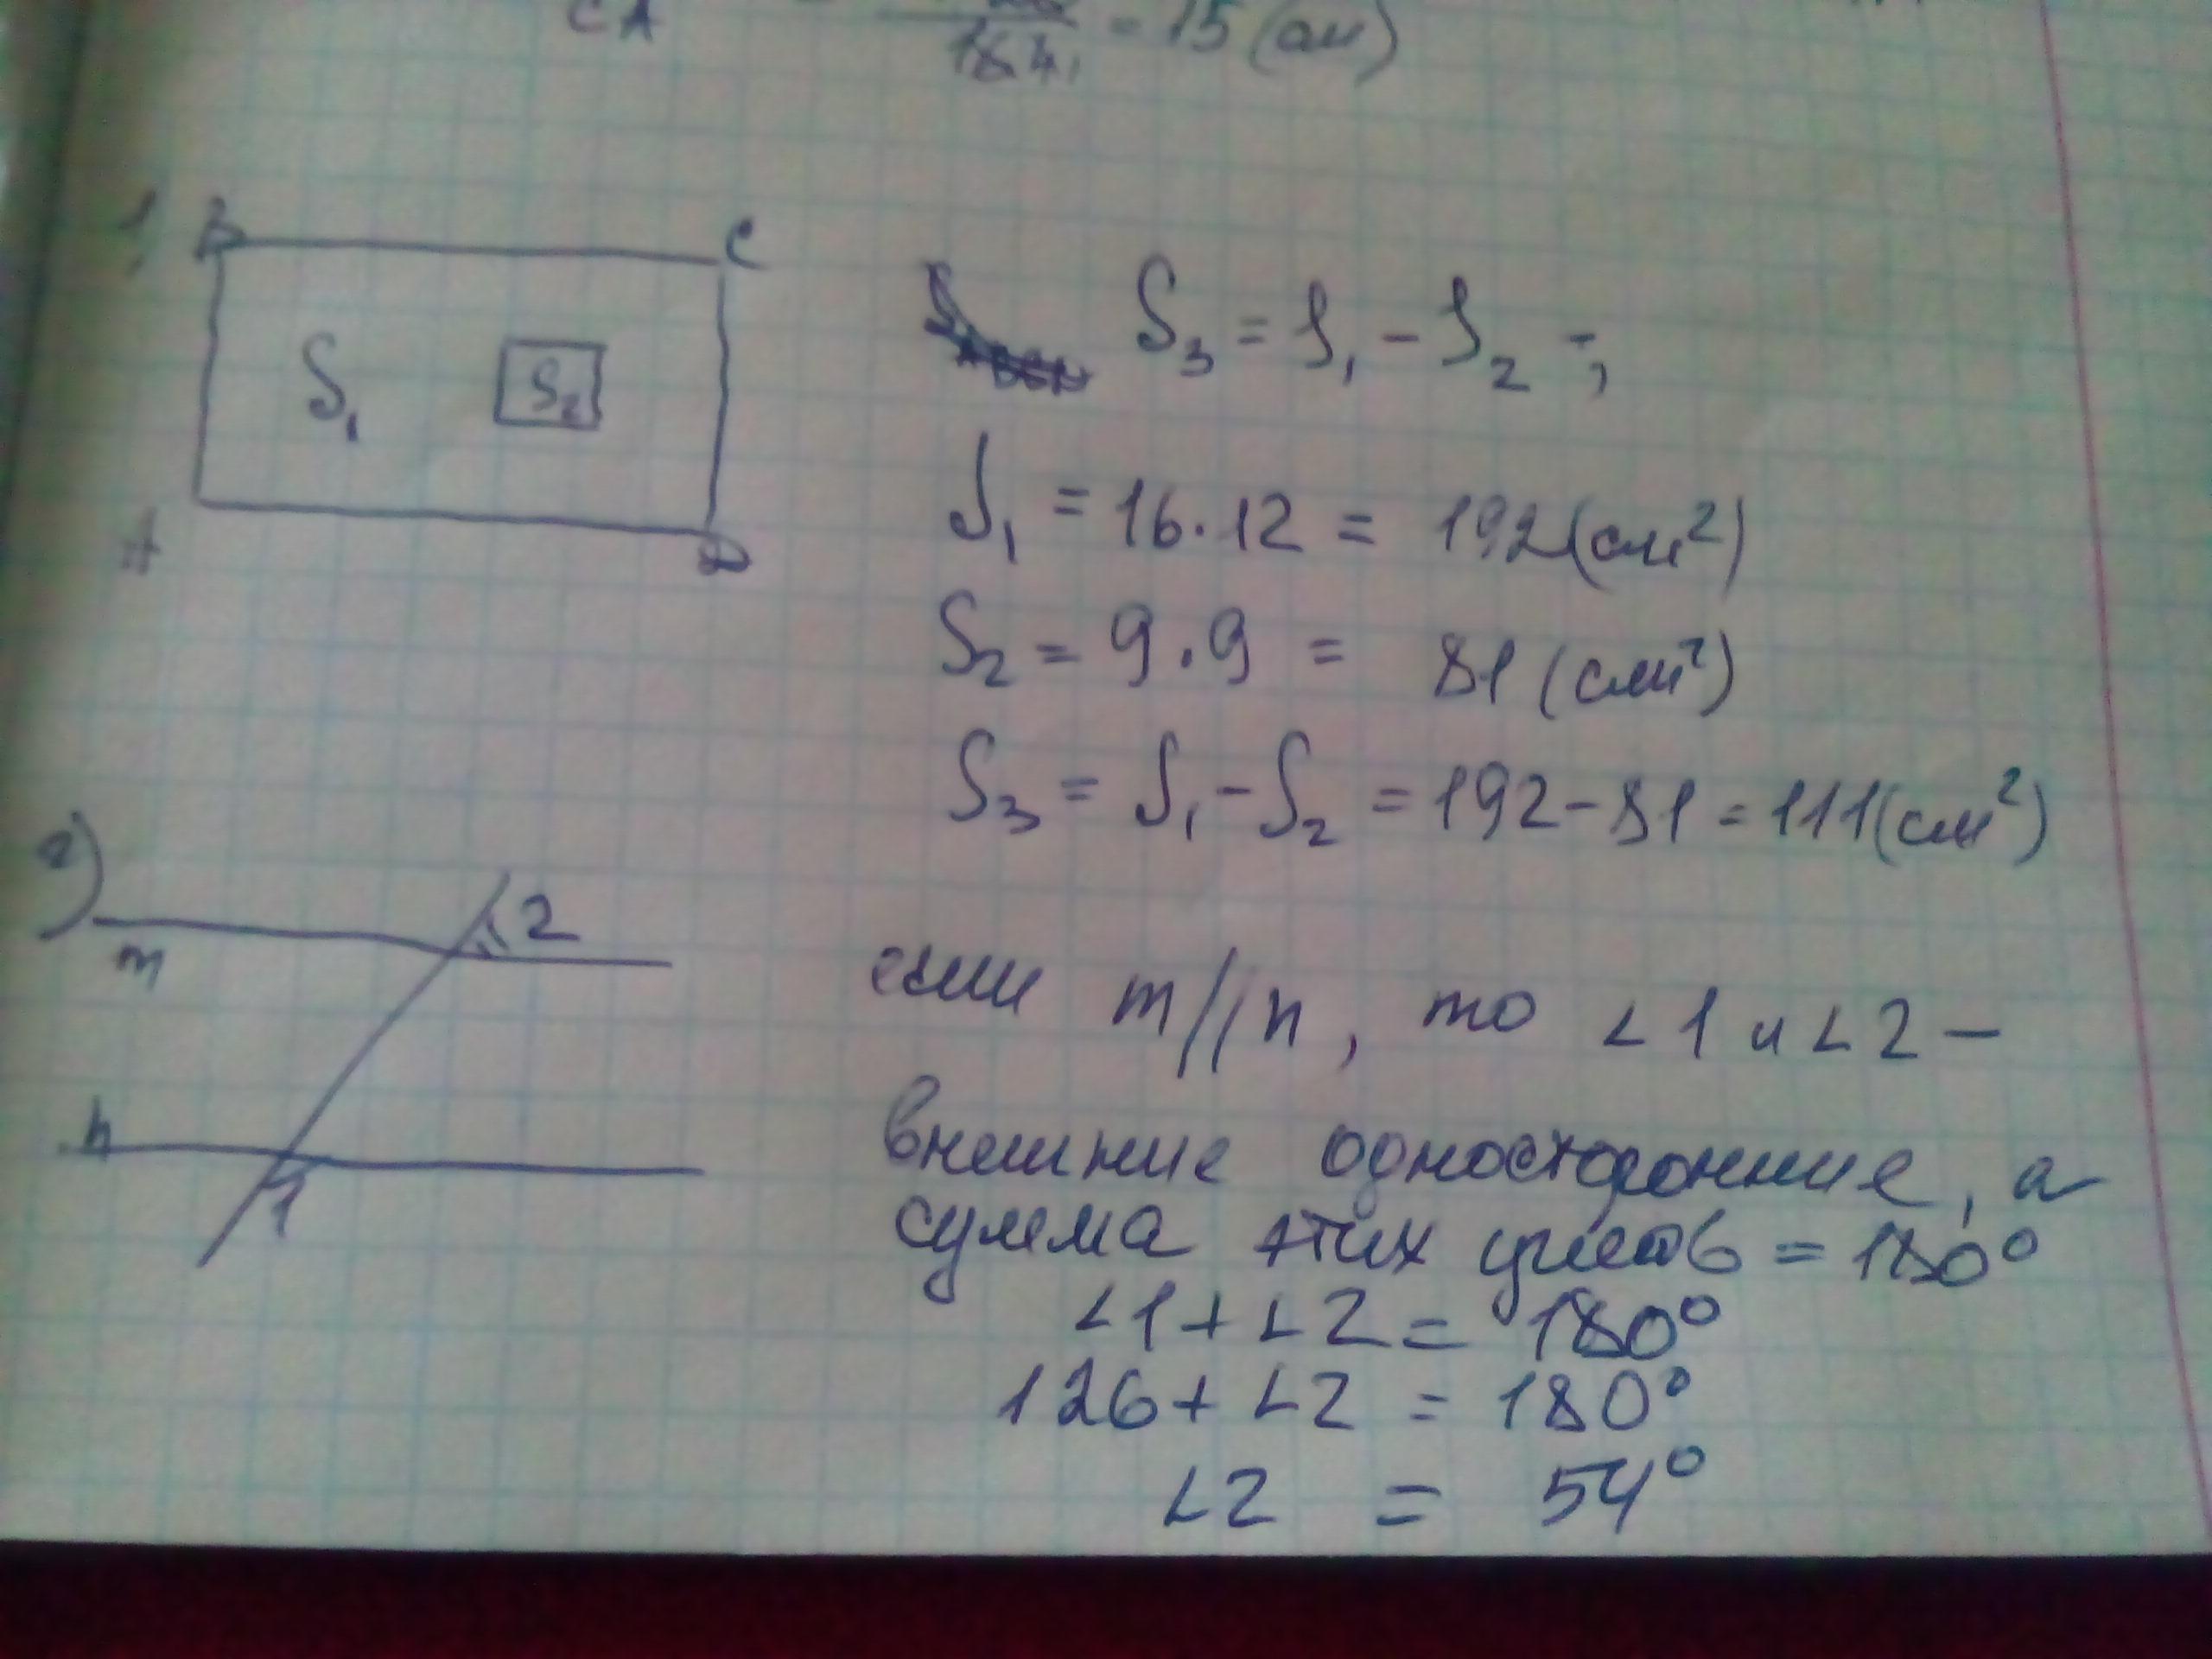 CA = 15 (см)
18.4
1)
B C
S₁ S₂
A D
S₃ = S₁ - S₂ ;
S₁ = 16 · 12 = 192 (см²)
S₂ = 9 · 9 = 81 (см²)
S₃ = S₁ - S₂ = 192 - 81 = 111 (см²)
2)
2
m
n
1
если m // n, то ∠1 и ∠2 -
внешние односторонние, а
сумма этих углов = 180°
∠1 + ∠2 = 180°
126 + ∠2 = 180°
∠2 = 54°